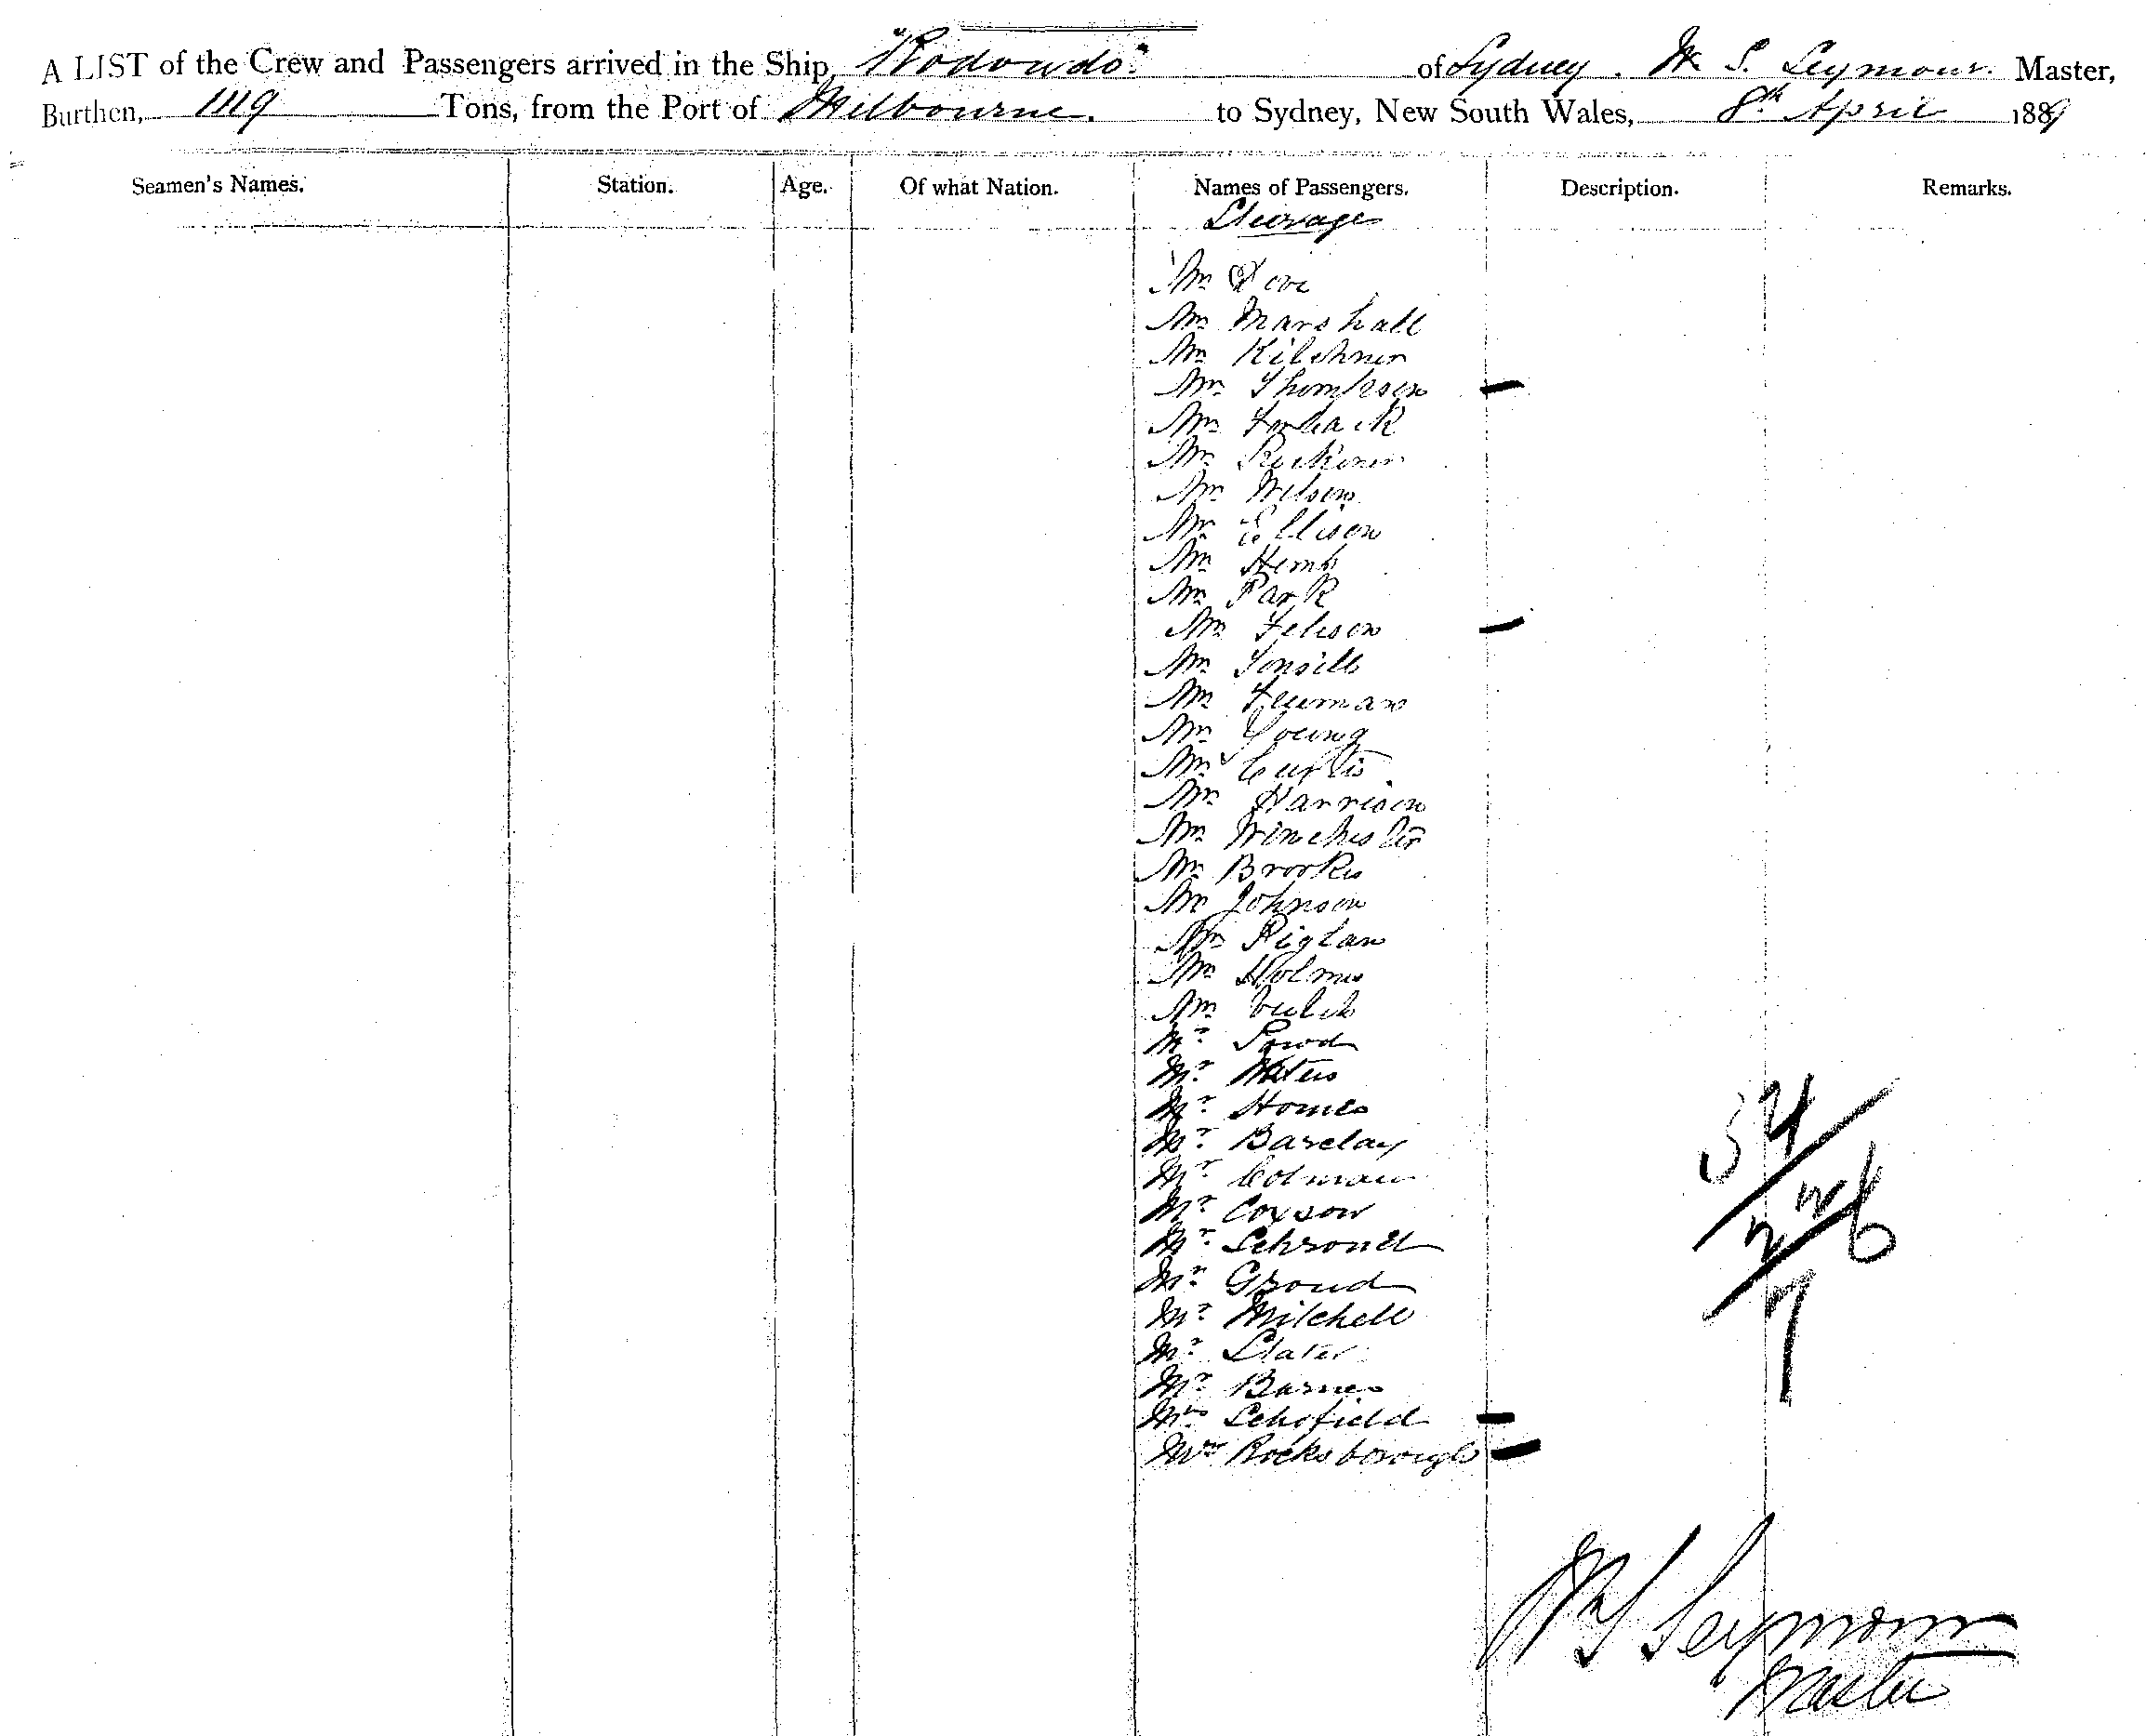 A LIST of the Crew and Passengers arrived in the Ship, "Rodondo." of Sydney. W. S. Seymour. Master,
Burthen, 1119 Tons, from the Port of Melbourne. to Sydney, New South Wales, 8th April 1889
Seamen's Names. Station. Age. Of what Nation. Names of Passengers. Description. Remarks.
Steerage
Mr
Mr Marshall
Mr Kilshner
Mr Thompson
Mr
Mr
Mr Wilson
Mr Ellison
Mr
Mr Park
Mr
Mr
Mr
Mr Young
Mr Curtis
Mr Harrison
Mr Winchester
Mr Brookes
Mr Johnson
Mr Riglan
Mr Holmes
Mr
Mr
Mr
Mr Homes
Mr Barclay
Mr Colman
Mr Coxson
Mr
Mr Groud
Mr Mitchell
Mr Slater
Mr Barnes
Mrs Schofield
Mrs Rocksborough
34
2 6
7
W S Seymour
Master